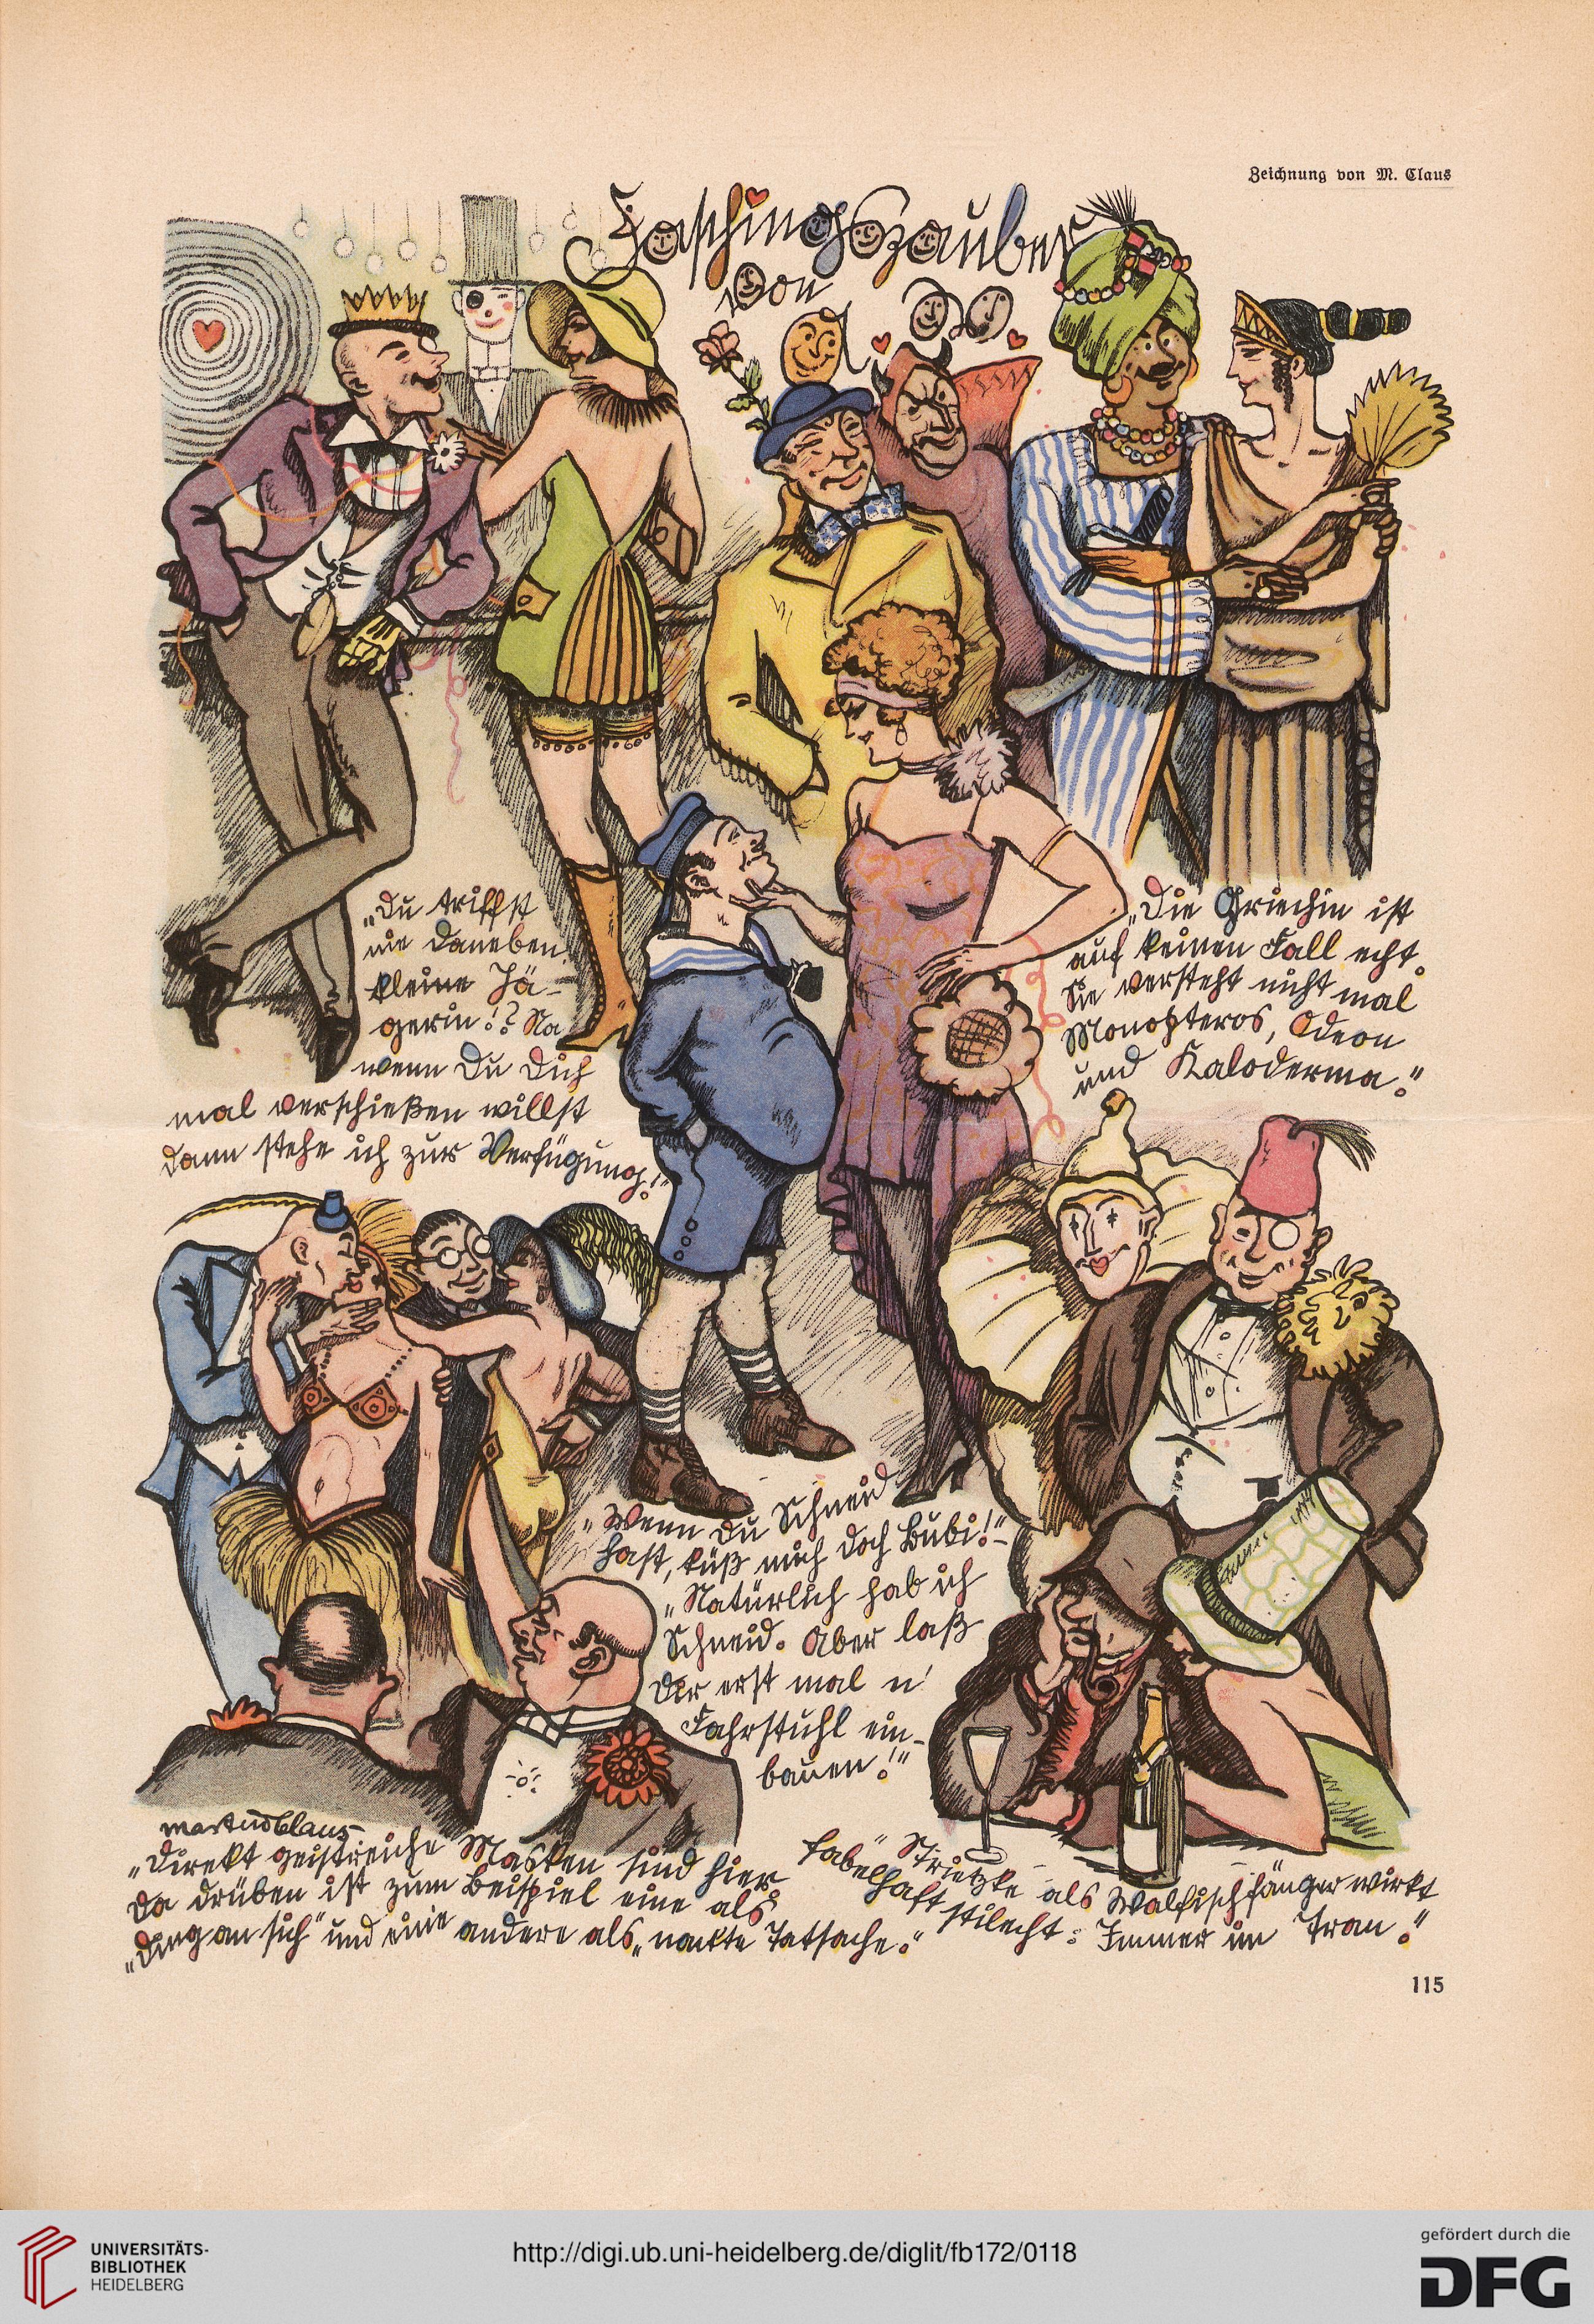 Zeichnung von M. Claus
Faschingszauber
von
„Du triffst
nie daneben
kleine Jä-
gerin!? Na
wenn Du Dich
mal verschießen willst
dann stehe ich zur Verfügung!"
„Die Griechin ist
auf keinen Fall echt.
Sie versteht nicht mal
Monopteros, Odeon
und Kaloderma."
„Wenn Du Schneid
hast, küß mich doch Bubi!"-
„Natürlich hab ich
Schneid. Aber laß
Dir erst mal n'
Fahrstuhl ein-
bauen!"
martin Claus
„Direkt geistreiche Masken sind hier
Da drüben ist zum Beispiel eine als
„Ding an sich" und eine andere als „nackte Tatsache."
„Strietzke als Walfischfänger wirkt
fabelhaft stilecht: Immer im Tran."
115
UNIVERSITÄTS-
BIBLIOTHEK
HEIDELBERG
http://digi.ub.uni-heidelberg.de/diglit/fb172/0118
gefördert durch die
DFG